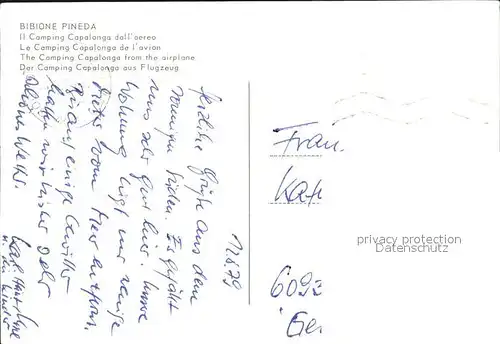 BIBIONE PINEDA
Il Camping Capalonga dall'aereo
Le Camping Capalonga de l'avion
The Camping Capalonga from the airplane
Der Camping Capalonga aus Flugzeug
12.8.79
Herzliche Grüße aus dem
sonnigen Süden. Es gefällt
uns sehr gut hier. Unsere
Wohnung liegt nur wenige
Meter vom Meer entfernt.
Bis auf einige Gewitter
hatten wir bisher sehr
schönes Wetter.
u. die Kinder
Frau
Kat
privacy protection
Datenschutz
6092
Ge